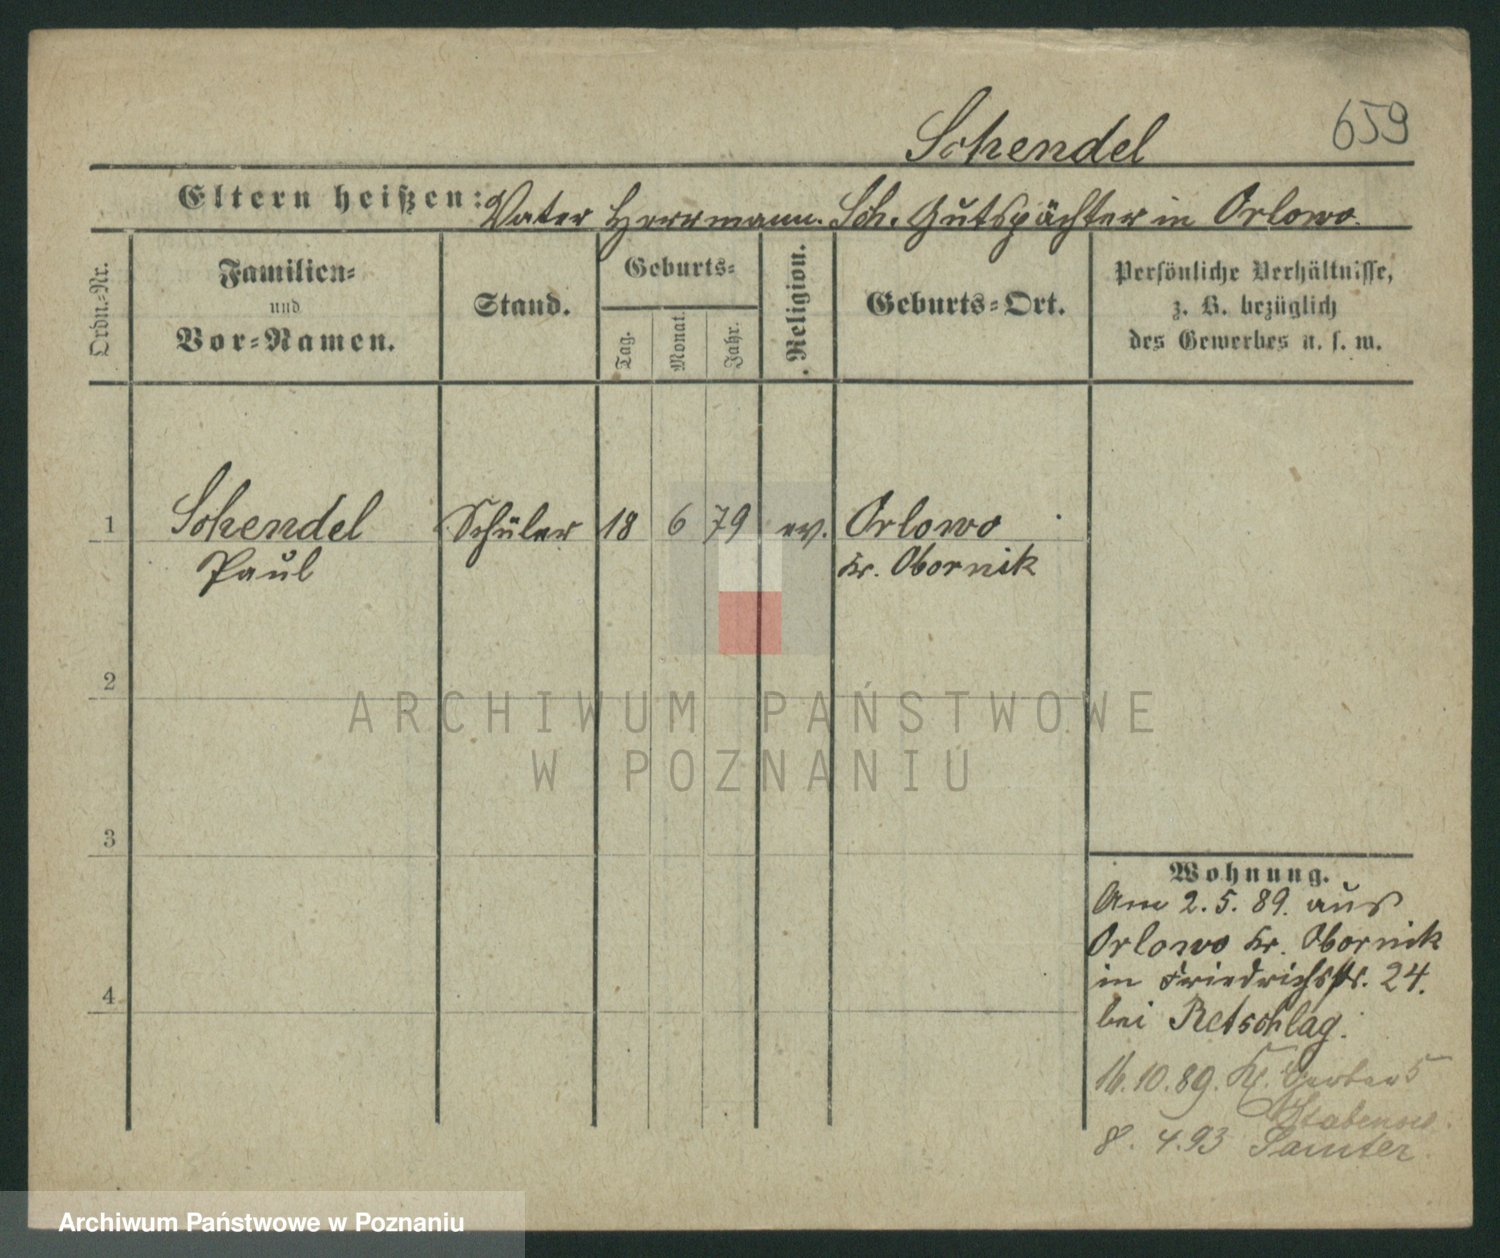 659
Schendel
Eltern heißen: Vater Herrmann Sch. Gutspächter in Orlowo.
Ordn.-Nr.
Familien-
und
Vor-Namen.
Stand.
Geburts-
Tag.
Monat.
Jahr.
Religion.
Geburts-Ort.
Persönliche Verhältnisse,
z. B. bezüglich
des Gewerbes u. s. w.
1 Schendel Schüler 18 6 79 ev. Orlowo
Paul Kr. Obornik
2
3
4
Wohnung.
Am 2. 5. 89. aus
Orlowo Kr. Obornik
in Friedrichstr. 24.
bei Retschlag.
16.10.89. Kl. Gerber 5
Stabenow.
8. 4.93 Samter.
ARCHIWUM PAŃSTWOWE
W POZNANIU
Archiwum Państwowe w Poznaniu